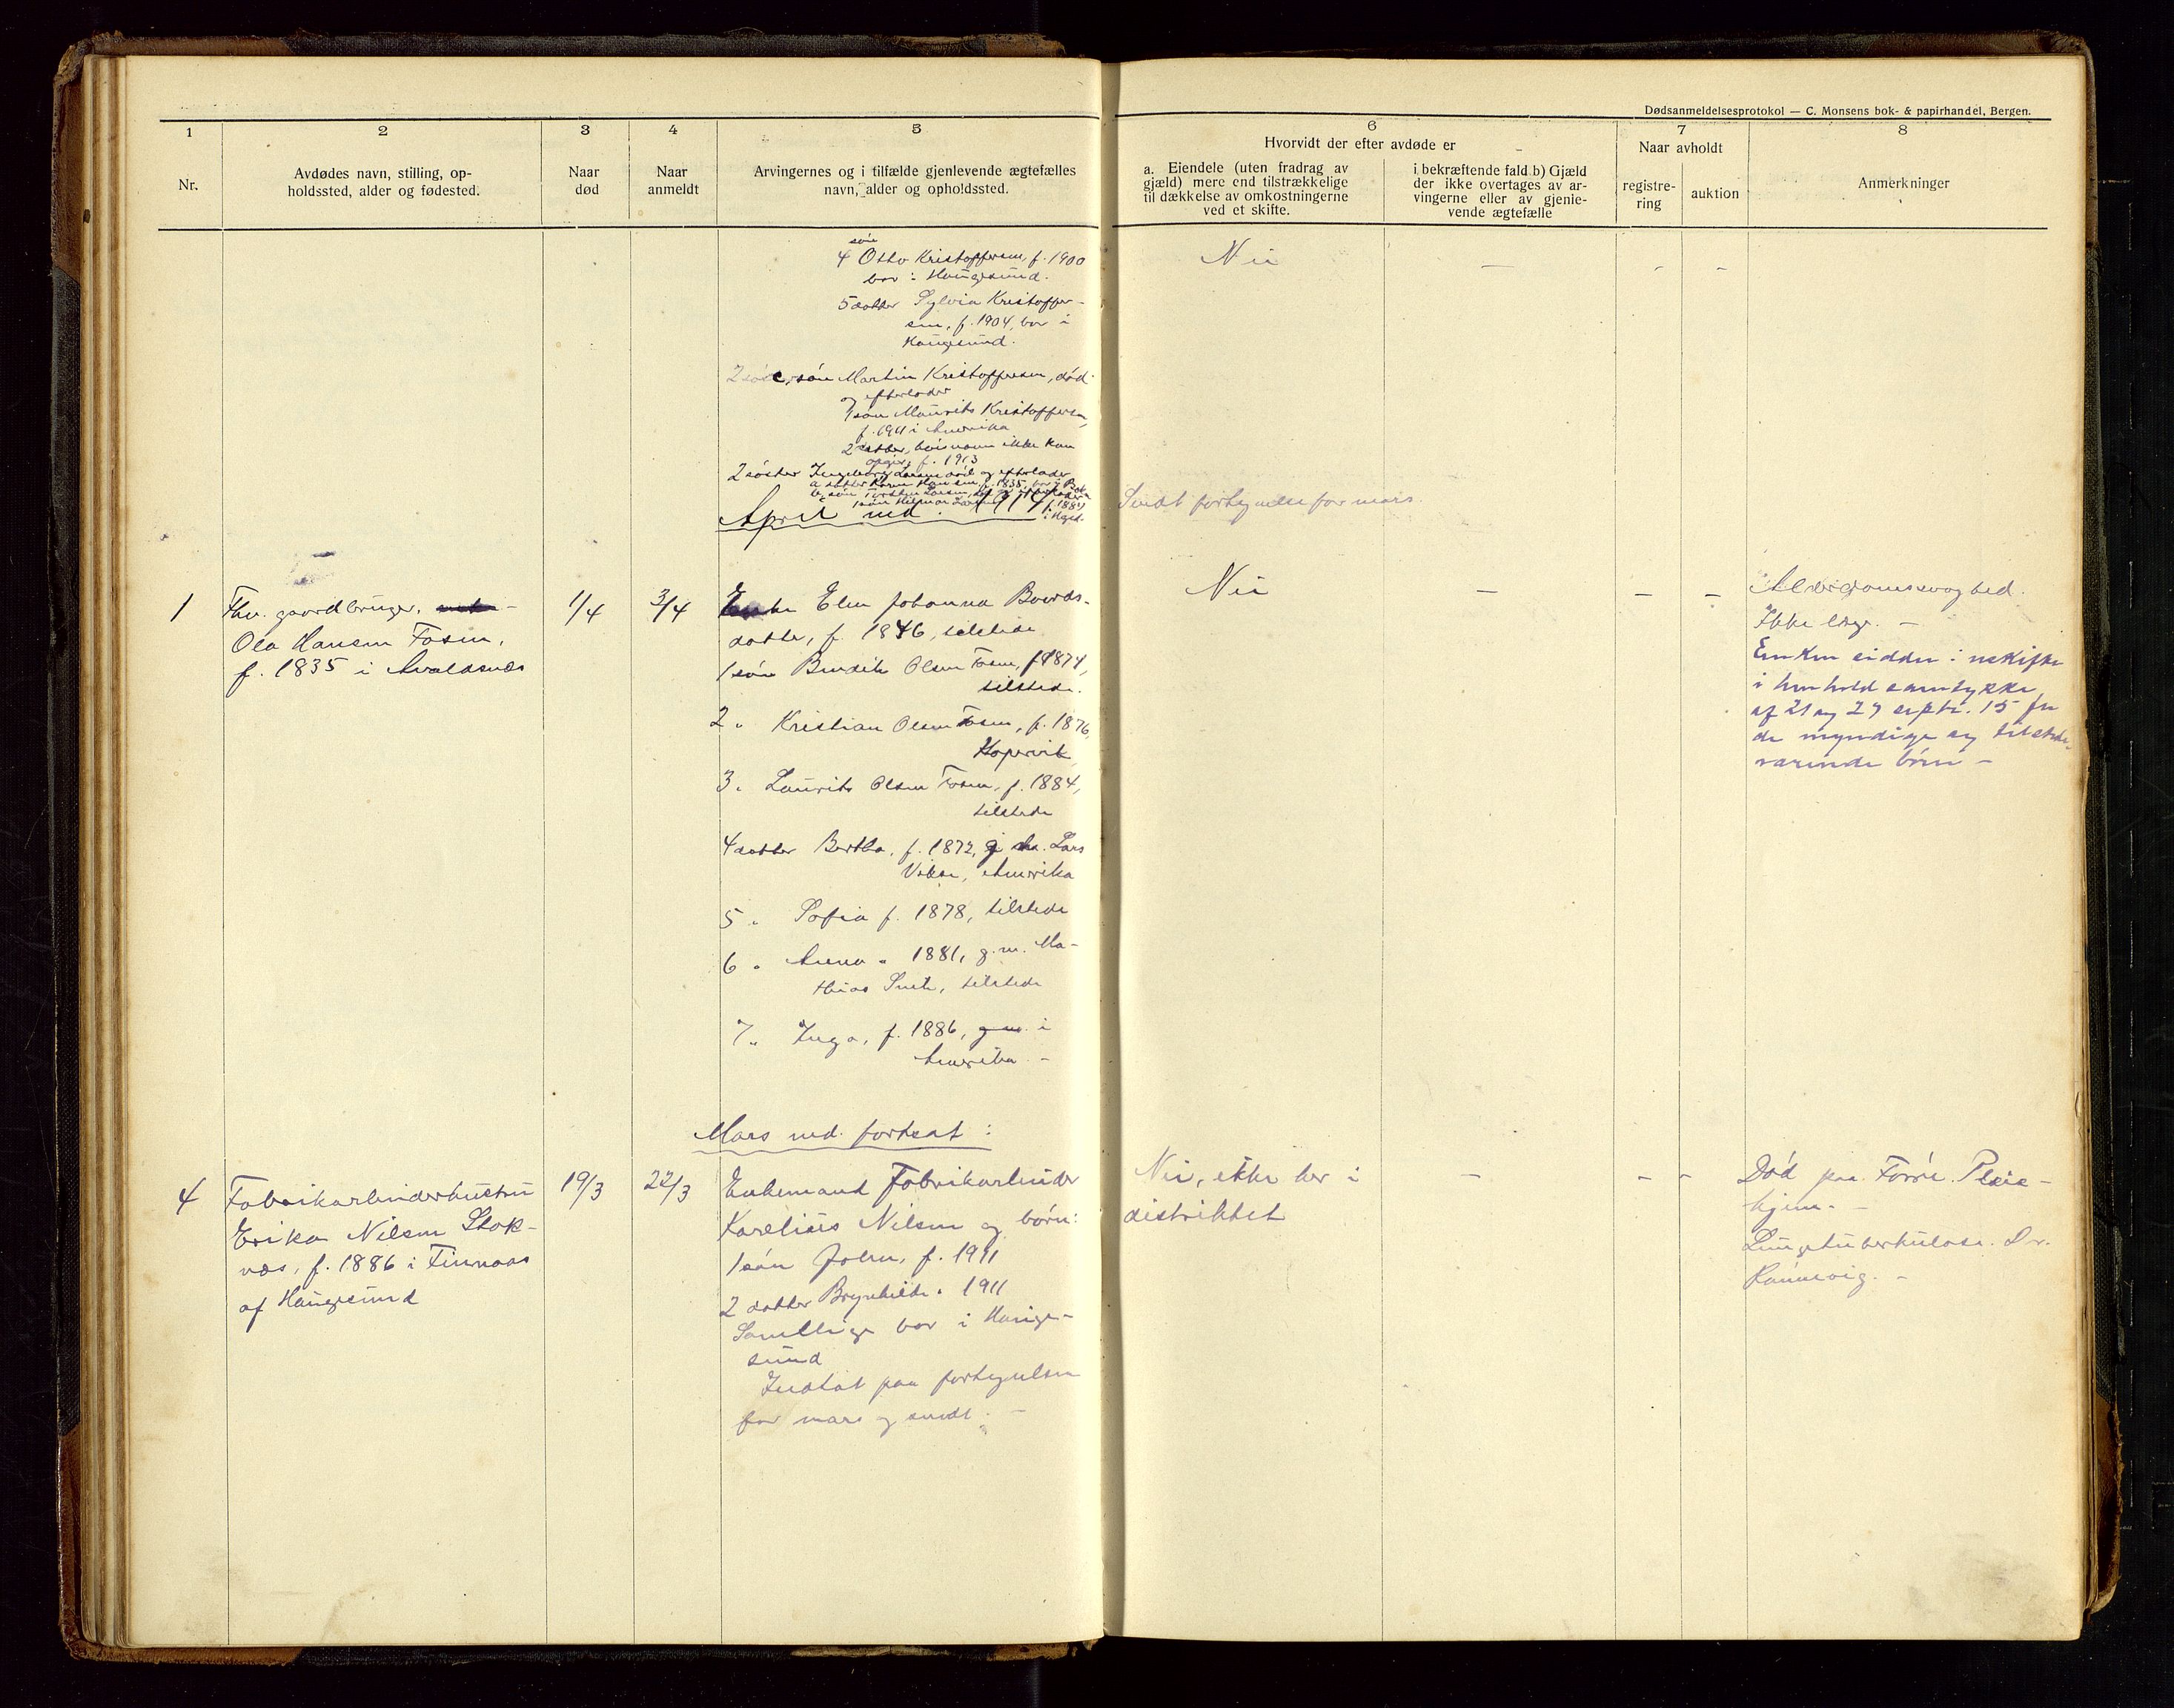 Dødsanmeldelsesprotokol — C. Monsens bok- & papirhandel, Bergen.
1
2
3
4
5
6
7
8
Nr.
Avdødes navn, stilling, op-
holdssted, alder og fødested.
Naar
død
Naar
anmeldt
Arvingernes og i tilfælde gjenlevende ægtefælles
navn, alder og opholdssted.
Hvorvidt der efter avdøde er
a. Eiendele (uten fradrag av
gjæld) mere end tilstrækkelige
til dækkelse av omkostningerne
ved et skifte.
i bekræftende fald b) Gjæld
der ikke overtages av ar-
vingerne eller av gjenle-
vende ægtefælle
Naar avholdt
registre-
ring
auktion
Anmerkninger
søn
4 Otto Kristoffersen, f. 1900
bor i Haugesund.
Nei — - -
5 datter Sylvia Kristoffer-
sen, f. 1904, bor i
Haugesund.
søn Martin Kristoffersen, død
og efterlader
1 søn Maurits Kristoffersen,
f. 1911 i Amerika
2 datter, hvis navn ikke kan
opgis, f. 1913
2 søster Ingeborg Larsen død og efterlader
a datter Karen Hansen, f. 1835, bor i Bokn
b. søn Torsten Larsen, død og efterlader
1 søn Hilmar Larsen, f. 1887
i Hgsd.
April md. 1914
Sendt fortegnelse for mars.
1
Fhv. gaardbruger,
Ola Hansen Fosen,
f. 1835 i Avaldsnes
1/4
3/4
Enke Elen Johanna Baards-
datter, f. 1846, tilstede
1 søn Bendik Olsen Fosen, f. 1874,
tilstede.
2 " Kristian Olsen Fosen, f. 1876,
Kopervik
3 " Laurits Olsen Fosen, f. 1884,
tilstede
4 datter Bertha, f. 1872, g. m. Lars
Vikse, Amerika
5 " Sofia f. 1878, tilstede
6 " Anna " 1881, g. m. Ma-
thias Snik, tilstede
7 " Inga, f. 1886, g. m. i
Amerika. -
Nei — - -
Alderdomssvaghed.
Ikke læge. -
Enken sidder i uskifte
i henhold samtykke
af 21 og 27 septr. 15 fra
de myndige og tilstede-
værende børn -
Mars md. fortsat :
4
Fabrikarbeiderhustru
Erika Nilsen Stok-
næs, f. 1886 i Finnaas
af Haugesund
19/3
22/3
Enkemand Fabrikarbeider
Karelius Nilsen og børn:
1 søn John, f. 1911
2 datter Brynhilde " 1911
Samtlige bor i Hauge-
sund
Indtat paa fortegnelsen
for mars og sendt. -
Nei, ikke her i
distriktet
- - -
Død paa Førre Pleie-
hjem. -
Lungetuberkulose. Dr.
Rønnevig. -